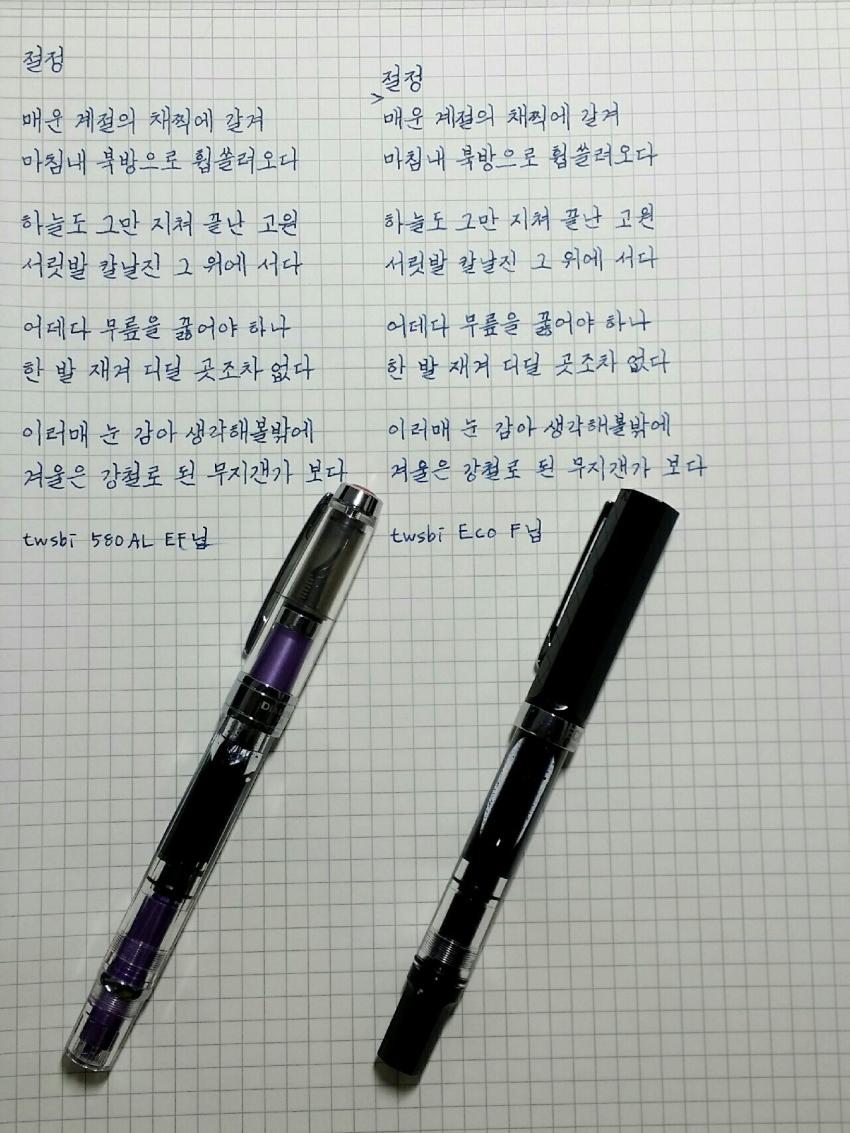 절정
매운 계절의 채찍에 갈겨
마침내 북방으로 휩쓸려오다
하늘도 그만 지쳐 끝난 고원
서릿발 칼날진 그 위에 서다
어데다 무릎을 꿇어야 하나
한 발 재겨 디딜 곳조차 없다
이러매 눈 감아 생각해볼밖에
겨울은 강철로 된 무지갠가 보다
twsbi 580AL EF닙
절정
>
매운 계절의 채찍에 갈겨
마침내 북방으로 휩쓸려오다
하늘도 그만 지쳐 끝난 고원
서릿발 칼날진 그 위에 서다
어데다 무릎을 꿇어야 하나
한 발 재겨 디딜 곳조차 없다
이러매 눈 감아 생각해볼밖에
겨울은 강철로 된 무지갠가 보다
twsbi Eco F닙